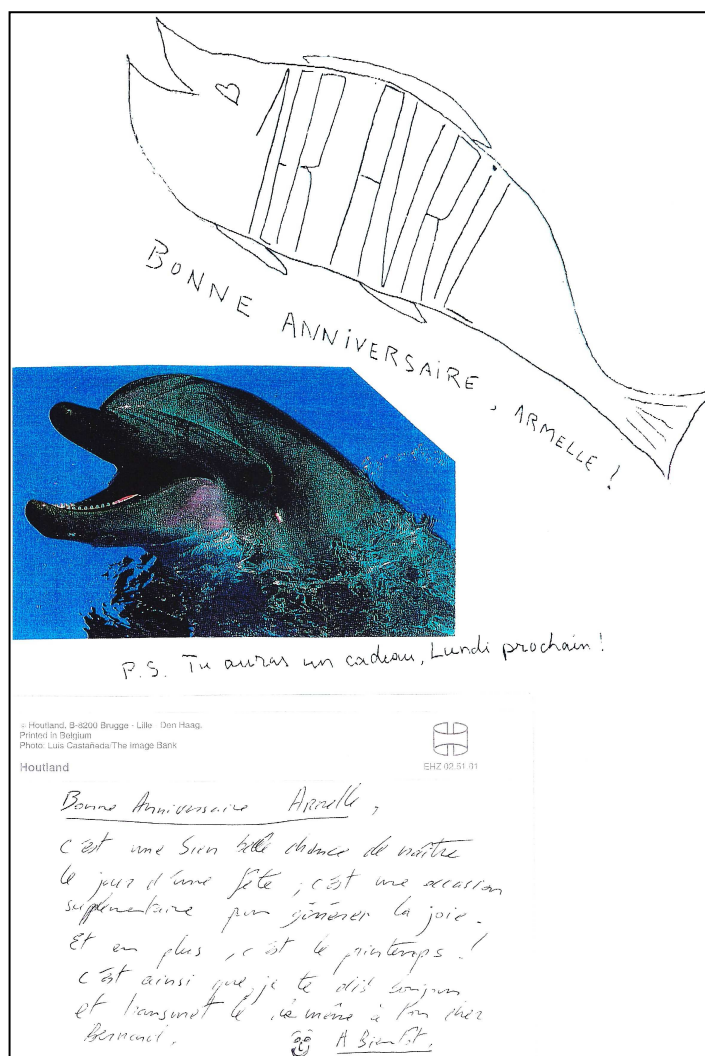 1ER AVRIL
BONNE ANNIVERSAIRE, ARMELLE!
P.S. Tu auras un cadeau, Lundi prochain!
Houtland, B-8200 Brugge - Lille Den Haag.
Printed in Belgium
Photo: Luis Castañeda/The Image Bank
Houtland
EHZ 02.51.01
Bonne Anniversaire Armelle,
c'est une bien belle chance de naître
le jour d'une fête, c'est une occasion
supplémentaire pour générer la joie.
Et en plus, c'est le printemps!
c'est ainsi que je te dis bonjour
et transmet le de même à ton cher
Bernard. A Bientôt.